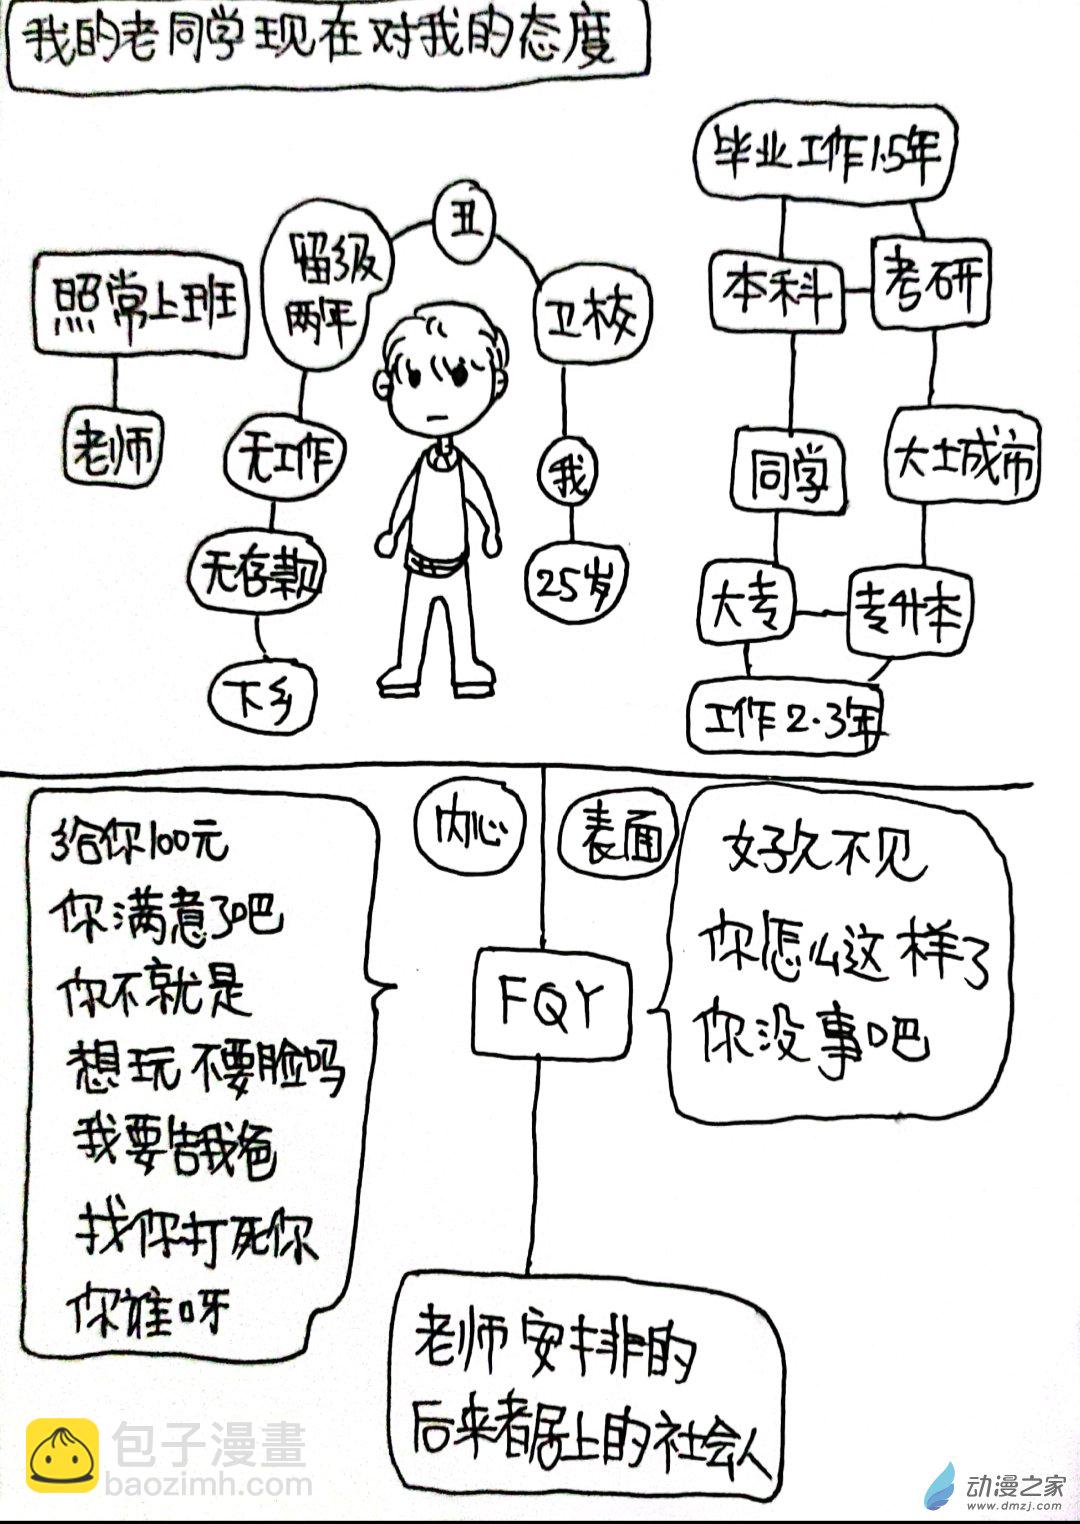 我的老同学现在对我的态度
照常上班
老师
留级
两年
丑
卫校
无工作
我
无存款
25岁
下乡
毕业工作1.5年
本科
考研
同学
大城市
大专
专升本
工作2.3年
内心
表面
给你100元
你满意了吧
你不就是
想玩不要脸吗
我要告我爸
找你打死你
你谁呀
FQY
好久不见
你怎么这样了
你没事吧
老师安排的
后来者居上的社会人
包子漫畫
baozimh.com
动漫之家
www.dmzj.com